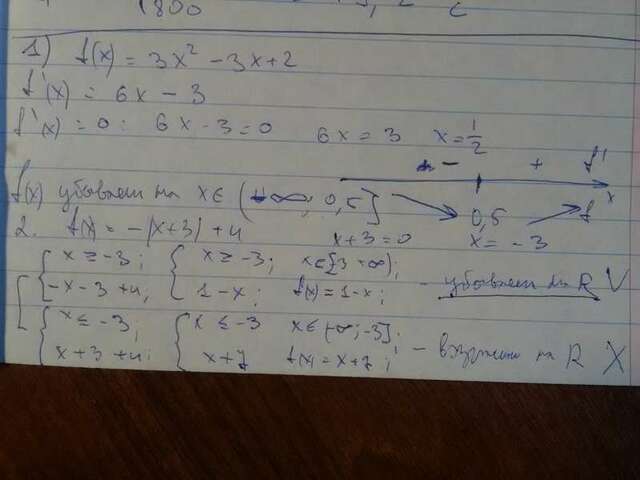 1800
1) f(x) = 3x² - 3x + 2
f'(x) = 6x - 3
f'(x) = 0 : 6x - 3 = 0 6x = 3 x = 1/2
- + f'
x
f(x) убывает на x ∈ (-∞; 0,5] 0,5 f
2. f(x) = -|x+3| + 4 x+3=0 x = -3
x ≥ -3; x ≥ -3; x ∈ [3 +∞);
-x - 3 + 4; 1 - x; f(x) = 1 - x; - убывает на R V
x ≤ -3; x ≤ -3 x ∈ (-∞; -3];
x + 3 + 4; x + 7 f(x) = x + 7; - на R X